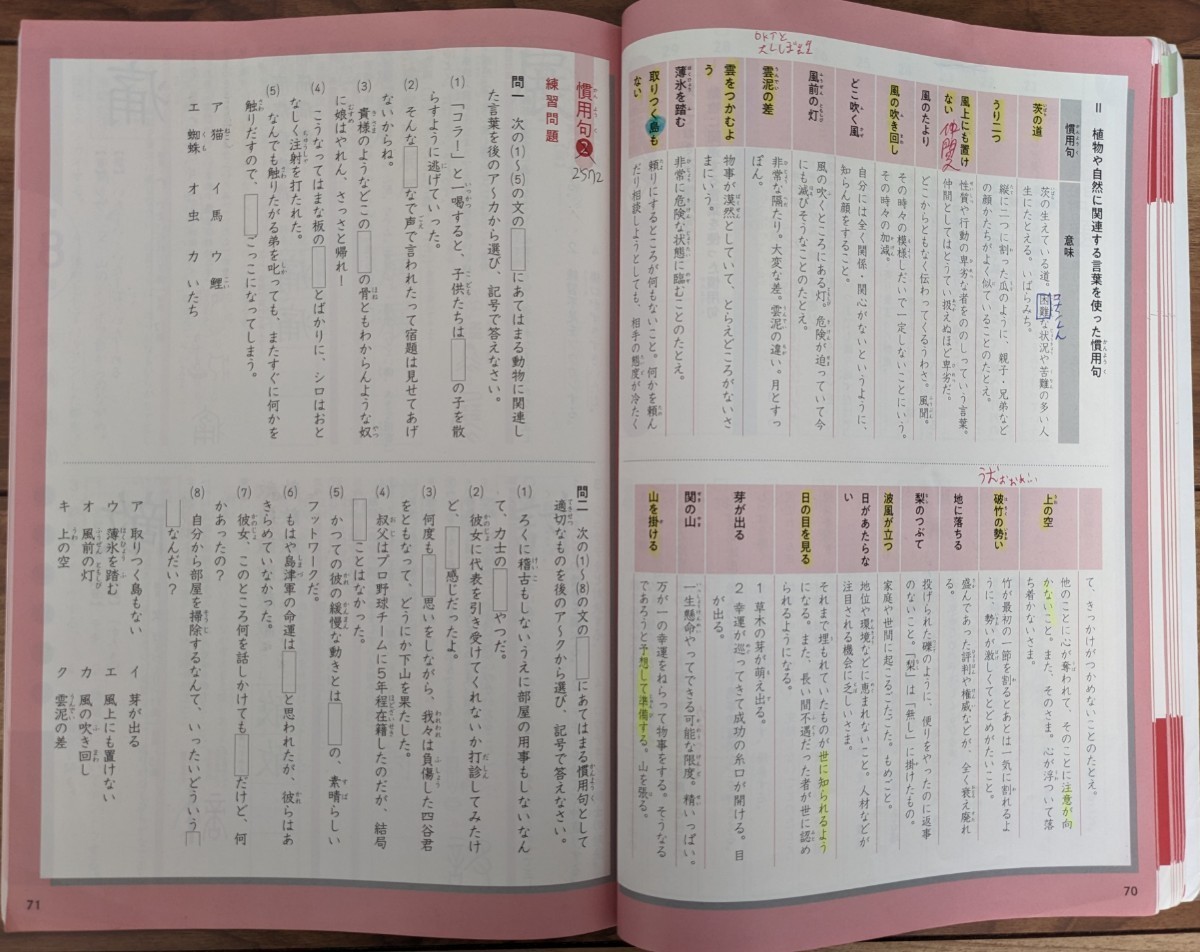 Ⅱ 植物や自然に関連する言葉を使った慣用句
慣用句
意味
茨の道
茨の生えている道。困難な状況や苦難の多い人
生にたとえる。いばらみち。
コナンくん
うり二つ
縦に二つに割った瓜のように、親子・兄弟など
の顔かたちがよく似ていることのたとえ。
風上にも置け
ない
仲間
性質や行動の卑劣な者をののしっていう言葉。
仲間としてはとうてい扱えぬほど卑劣だ。
風のたより
どこからともなく伝わってくるうわさ。風聞。
風の吹き回し
その時々の模様しだいで一定しないことにいう。
その時々の加減。
どこ吹く風
自分には全く関係・関心がないというように、
知らん顔をすること。
風前の灯
風の吹くところにある灯。危険が迫っていて今
にも滅びそうなことのたとえ。
雲泥の差
非常な隔たり。大変な差。雲泥の違い。月とすっ
ぽん。
雲をつかむよ
う
物事が漠然としていて、とらえどころがないさ
まにいう。
薄氷を踏む
非常に危険な状態に臨むことのたとえ。
取りつく島も
ない
頼りにするところが何もないこと。何かを頼ん
だり相談しようとしても、相手の態度が冷たく
て、きっかけがつかめないことのたとえ。
上の空
他のことに心が奪われて、そのことに注意が向
かないこと。また、そのさま。心が浮ついて落
ち着かないさま。
破竹の勢い
竹が最初の一節を割るとあとは一気に割れるよ
うに、勢いが激しくてとどめがたいこと。
地に落ちる
盛んであった評判や権威などが、全く衰え廃れ
る。
梨のつぶて
投げられた礫のように、便りをやったのに返事
のないこと。「梨」は「無し」に掛けたもの。
波風が立つ
家庭や世間に起こるごたごた。もめごと。
日があたらな
い
地位や環境などに恵まれないこと。人材などが
注目される機会に乏しいさま。
日の目を見る
それまで埋もれていたものが世に知られるよう
になる。また、長い間不遇だった者が世に認め
られるようになる。
芽が出る
1 草木の芽が萌え出る。
2 幸運が巡ってきて成功の糸口が開ける。目
が出る。
関の山
一生懸命やってできる可能な限度。精いっぱい。
山を掛ける
万が一の幸運をねらって物事をする。そうなる
であろうと予想して準備する。山を張る。
70
慣用句❷
練習問題
問一 次の⑴〜⑸の文の□にあてはまる動物に関連し
た言葉を後のア〜カから選び、記号で答えなさい。
⑴ 「コラー!」と一喝すると、子供たちは□の子を散
らすように逃げていった。
⑵ そんな□なで声で言われたって宿題は見せてあげ
ないからね。
⑶ 貴様のようなどこの□の骨ともわからんような奴
に娘はやれん、さっさと帰れ!
⑷ こうなってはまな板の□とばかりに、シロはおと
なしく注射を打たれた。
⑸ なんでも触りたがる弟を叱っても、またすぐに何かを
触りだすので、□ごっこになってしまう。
ア 猫 イ 馬 ウ 鯉
エ 蜘蛛 オ 虫 カ いたち
問二 次の⑴〜⑻の文の□にあてはまる慣用句として
適切なものを後のア〜クから選び、記号で答えなさい。
⑴ ろくに稽古もしないうえに部屋の用事もしないなん
て、力士の□やつだ。
⑵ 彼女に代表を引き受けてくれないか打診してみたけ
ど、□感じだったよ。
⑶ 何度も□思いをしながら、我々は負傷した四谷君
をともなって、どうにか下山を果たした。
⑷ 叔父はプロ野球チームに5年程在籍したのだが、結局
□ことはなかった。
⑸ かつての彼の緩慢な動きとは□の、素晴らしい
フットワークだ。
⑹ もはや島津軍の命運は□と思われたが、彼らはあ
きらめていなかった。
⑺ 彼女、このところ何を話しかけても□だけど、何
かあったの?
⑻ 自分から部屋を掃除するなんて、いったいどういう□
□なんだい?
ア 取りつく島もない イ 芽が出る
ウ 薄氷を踏む エ 風上にも置けない
オ 風前の灯。 カ 風の吹き回し
キ 上の空 ク 雲泥の差
71